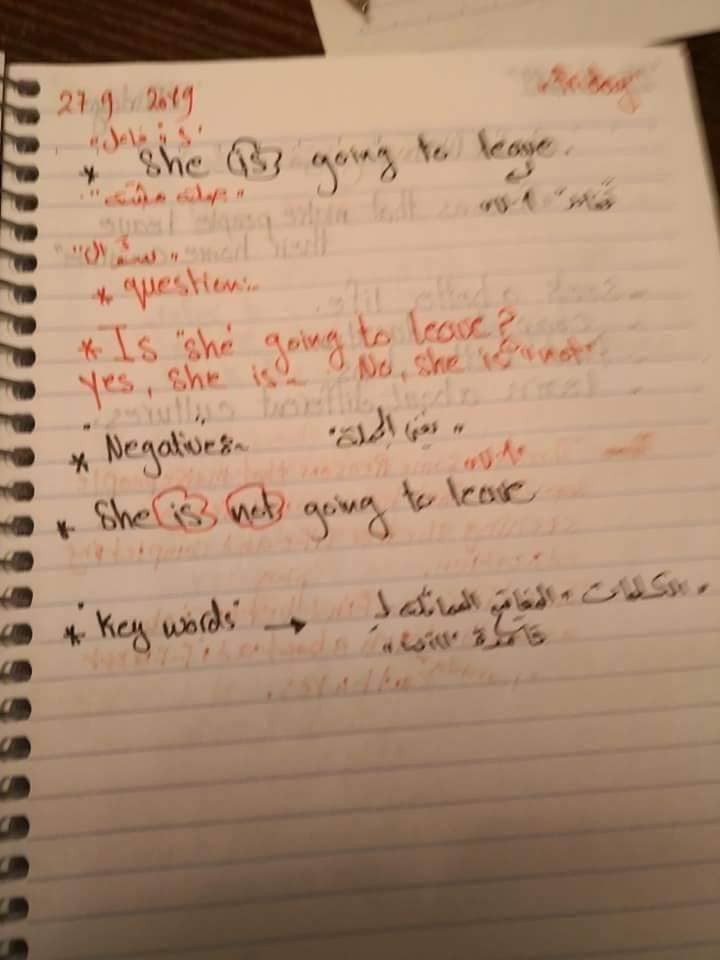 27 9 2019
* She is going to leave.
"جملة مثبتة"
"السؤال"
* question:-
* Is "she" going to leave?
yes, she is - No, she is "not"
* Negatives:- "نفي الجملة"
* She is not going to leave
* "Key words" → الكلمات المفاتيح
قاعدة